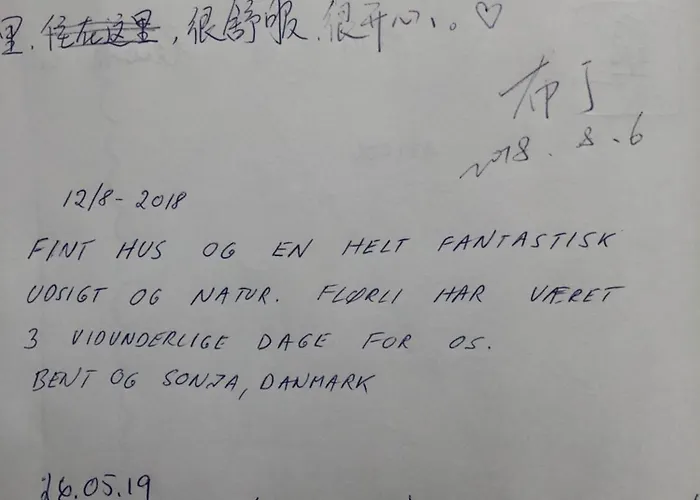 里，住在这里，很舒服，很开心。♡
布丁
2018.8.6
12/8-2018
FINT HUS OG EN HELT FANTASTISK
UDSIGT OG NATUR. FLØRLI HAR VÆRET
3 VIDUNDERLIGE DAGE FOR OS.
BENT OG SONJA, DANMARK
26.05.19